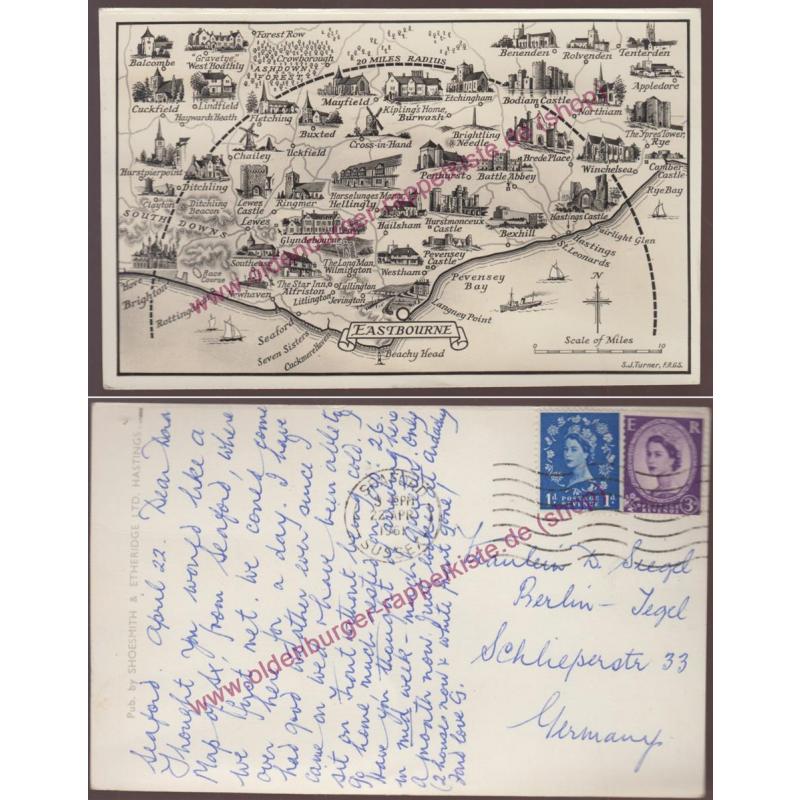 Balcombe
"Gravetye"
West Hoathly
Forest Row
Crowborough
ASHDOWN
FOREST
20 MILES RADIUS
Benenden
Rolvenden
Tenterden
Appledore
Cuckfield
Lindfield
Haywards Heath
Fletching
Mayfield
Kipling's Home,
Burwash
Etchingham
Bodiam Castle
Northiam
The Ypres Tower,
Rye
Chailey
Buxted
Uckfield
Cross-in-Hand
Brightling
Needle
Brede Place
Winchelsea
Camber
Castle
Rye Bay
Hurstpierpoint
Ditchling
Clayton
Ditchling
Beacon
Lewes
Castle
Lewes
Ringmer
Horselunges Manor
Hellingly
Penhurst
Battle Abbey
SOUTH DOWNS
Glyndebourne
Hailsham
Hurstmonceux
Castle
Bexhill
Hastings Castle
Hastings
St. Leonards
Fairlight Glen
Hove
Brighton
Race
Course
Rotting
Southease
Newhaven
The Long Man,
Wilmington
The Star Inn,
Alfriston
Lullington
Litlington
Jevington
Westham
Pevensey
Castle
Pevensey
Bay
Langney Point
Seaford
Seven Sisters
Cuckmere Haven
EASTBOURNE
Beachy Head
N
Scale of Miles
0
10
S.J. Turner, F.R.G.S.
www.oldenburger-rappelkiste.de (shop)
Pub. by SHOESMITH & ETHERIDGE LTD., HASTINGS
Seaford. April 22. Dear
Thought you would like a
Map of Sx from Seaford, where
we first met. We came
over here for a day. I have
had good weather ever since I
came on we & have been able to
sit on front without being cold. I
go home, much rested on 26.
Have you thought of coming here
in mid week - may - Gwen only
a month now. Just walked by
(2 houses now & white post gone)
Fond love G.
SEAFORD
PM
22 APR
196
SUSSEX
1d POSTAGE 1d
REVENUE
E R
POSTAGE
REVENUE
3D
Fräulein D. Siegel
Berlin-Tegel
Schlieperstr 33
Germany
www.oldenburger-rappelkiste.de (shop)